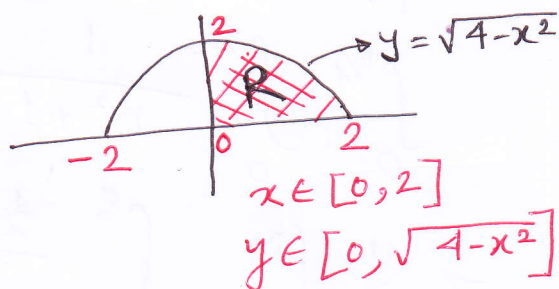 2
y = √4-x²
R
-2
0
2
x ∈ [0, 2]
y ∈ [0, √4-x²]